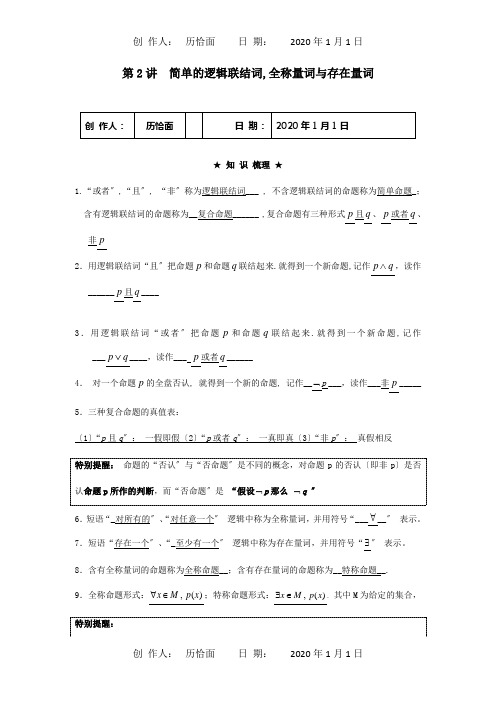 创 作人： 历恰面 日 期： 2020年1月1日
第2讲 简单的逻辑联结词,全称量词与存在量词
创 作人： 历恰面 日 期： 2020年1月1日
★ 知 识 梳理 ★
1.“或者〞, “且〞, “非〞称为逻辑联结词___ , 不含逻辑联结词的命题称为简单命题_;
含有逻辑联结词的命题称为__复合命题______ ,复合命题有三种形式p且q、p或者q、
非p
2．用逻辑联结词“且〞把命题p和命题q联结起来.就得到一个新命题,记作p∧q，读作
______p且q____
3．用逻辑联结词“或者〞把命题p和命题q联结起来.就得到一个新命题,记作
___p∨q____，读作____p或者q______
4． 对一个命题p的全盘否认, 就得到一个新的命题, 记作__¬p___，读作___非p_____
5．三种复合命题的真值表:
〔1〕“p且q〞： 一假即假〔2〕“p或者q〞： 一真即真〔3〕“非p〞： 真假相反
特别提醒： 命题的“否认〞与“否命题〞是不同的概念，对命题p的否认〔即非p〕是否
认命题p所作的判断，而“否命题〞是 “假设¬p那么 ¬q 〞
6．短语“_对所有的〞、“对任意一个〞 逻辑中称为全称量词，并用符号“___∀__〞 表示。
7．短语“存在一个〞、“_至少有一个〞 逻辑中称为存在量词，并用符号“∃〞 表示。
8．含有全称量词的命题称为全称命题__；含有存在量词的命题称为__特称命题__.
9．全称命题形式：∀x∈M，p(x)；特称命题形式：∃x∈M，p(x). 其中M为给定的集合，
特别提醒：
创 作人： 历恰面 日 期： 2020年1月1日